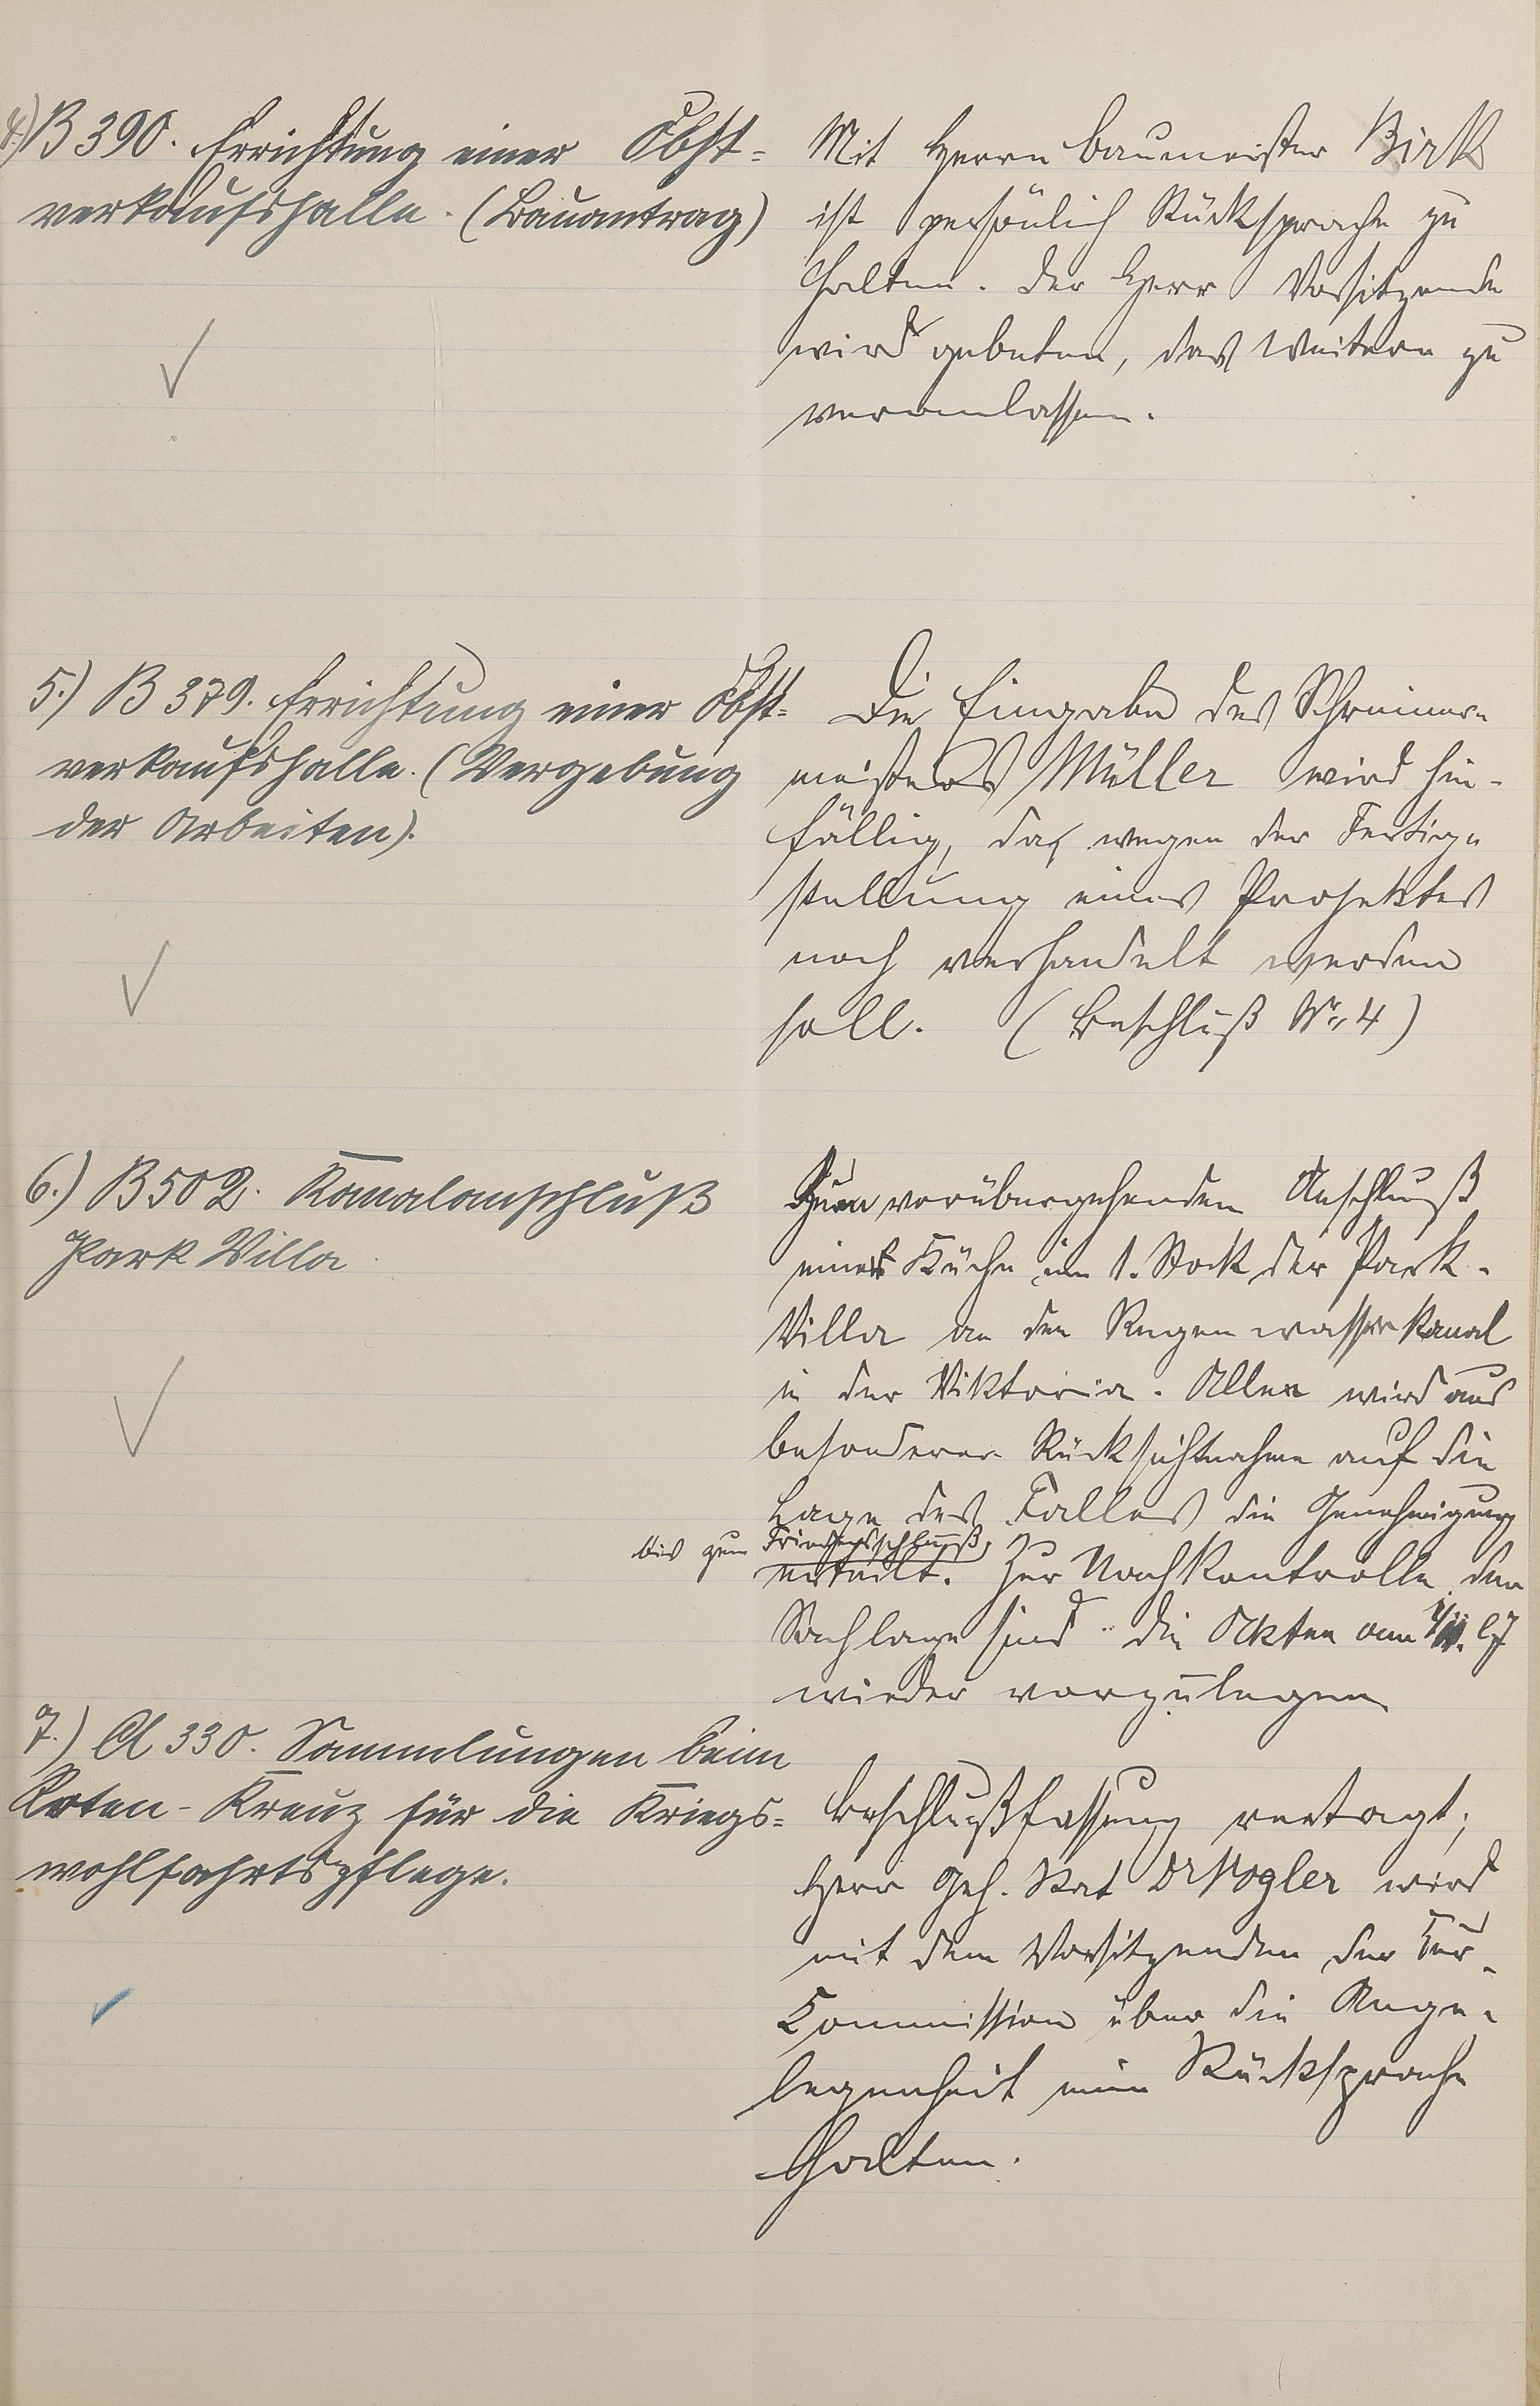 4.) B 390. Errichtung einer Obst=
verkaufshalle. (Bauantrag)
Mit Herrn Baumeister Birk
ist persönlich Rücksprache zu
halten. Der Herr Vorsitzende
wird gebeten, das Weitere zu
veranlassen.
5.) B 379. Errichtung einer Obst=
verkaufshalle. (Vergebung
der Arbeiten).
Die Eingabe des Schreiner-
meisters Müller wird hin-
fällig, da wegen der Fertig-
stellung eines Projektes
noch verhandelt werden
soll. (Beschluß Nr. 4)
6.) B 502. Kanalanschluß
Park Villa
Zum vorübergehenden Anschluß
einer Küche im 1. Stock der Park-
Villa an den Regenwasserkanal
in der Viktoria-Allee wird aus
besonderer Rücksichtnahme auf die
Lage des Falles die Genehmigung
bis zum Friedensschluß
erteilt. Zur Nachkontrolle der
Sachlage sind die Akten am
wieder vorzulegen.
7.) A 330. Sammlungen beim
Roten-Kreuz für die Kriegs=
wohlfahrtspflege.
Beschlußfassung vertagt;
Herr Geh. Rat Dr Vogler wird
mit dem Vorsitzenden der Kur-
Commission über die Ange-
legenheit eine Rücksprache
halten.